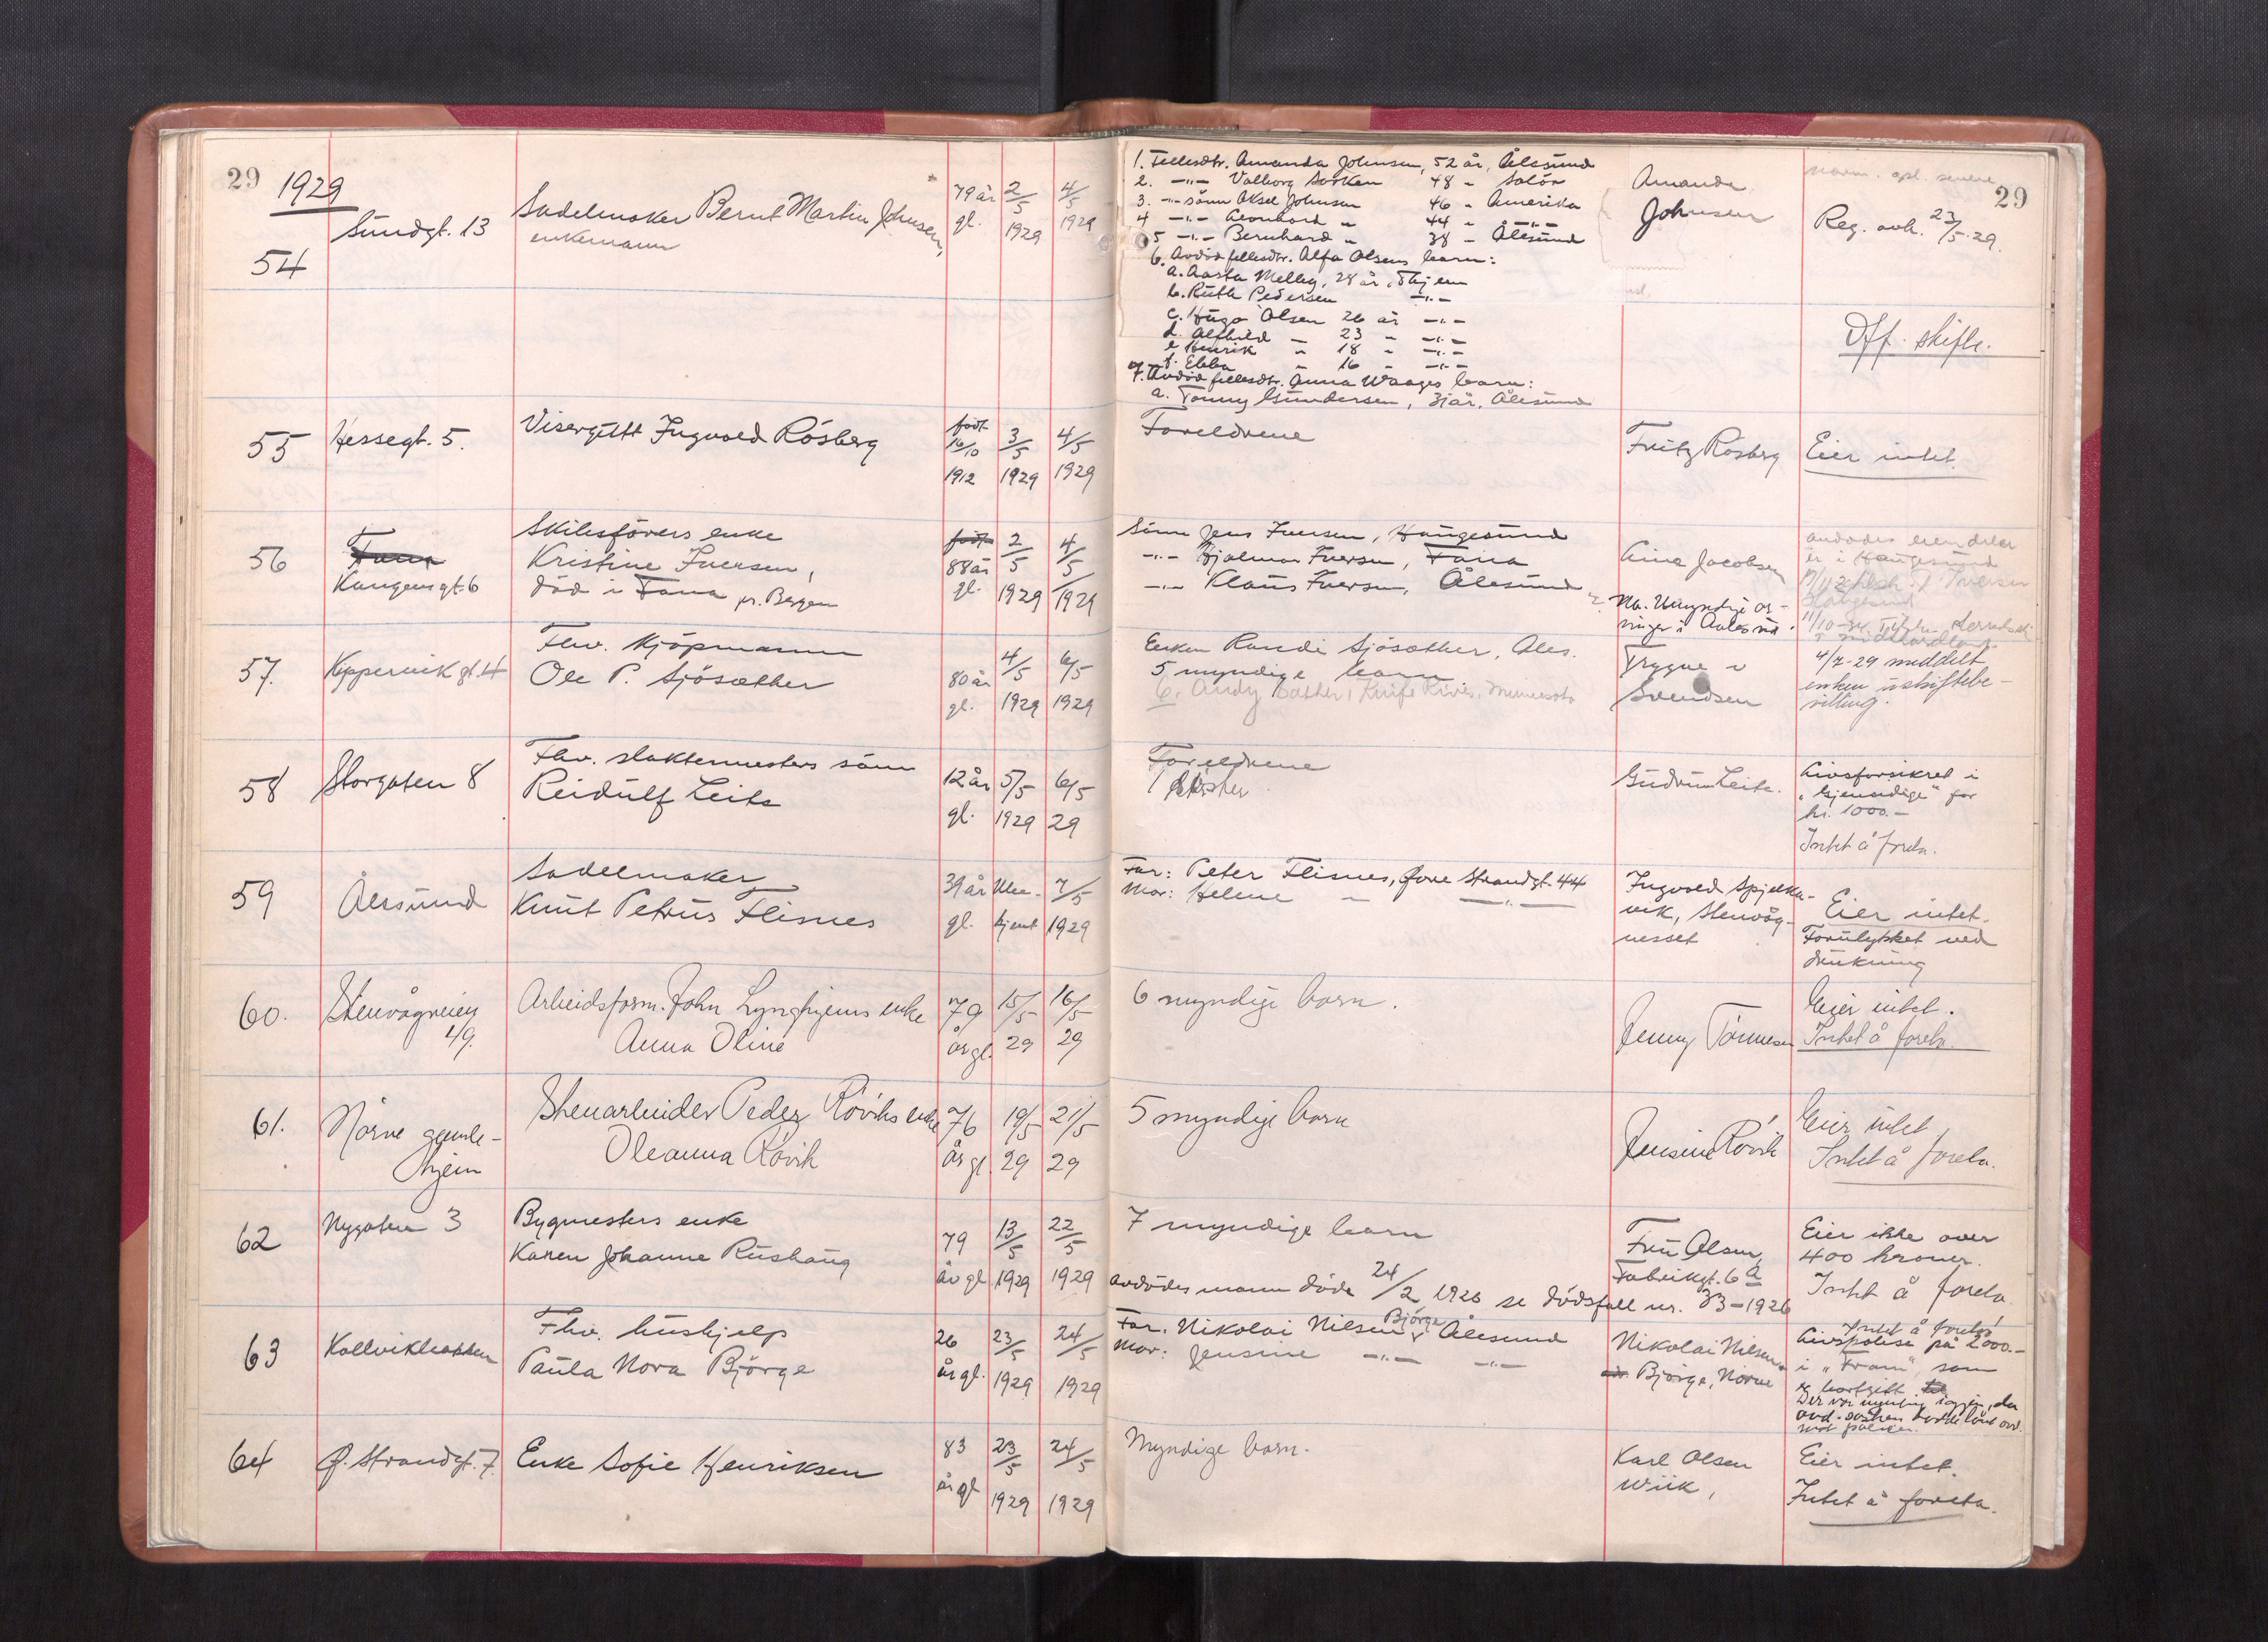 29
1929
54
Sundgt. 13
Sadelmaker Bernt Martin Johnsen,
enkemann
79 år
gl.
2/5
1929
4/5
1929
1. Fellesdtr. Amanda Johnsen, 52 år, Ålesund
2. -"- Valborg Sorken 48 - Solör
3. -"- sönn Aksel Johnsen 46 - Amerika
4 -"- Leonhard " 44 " -"-
5 -"- Bernhard " 38 - Ålesund
6. Avdöd fellesdtr. Alfa Olsens barn:
a. Aasta Melby, 28 år, Thjem
b. Ruth Pedersen -"-
c. Hugo Olsen 26 år -"-
d. Alfhild - 23 " -"-
e Henrik " 18 - -"-
f. Ebba " 16 - -"-
7. Avdöd fellesdtr. Anna Waages barn:
a. Tonny Gundersen, 31 år, Ålesund
Amanda
Johnsen
29
Reg. avh. 23/5-29.
Off. skifte.
55
Hessegt. 5.
Visergutt Ingvald Rösberg
født
16/10
1912
3/5
1929
4/5
1929
Foreldrene
Fritz Rösberg
Eier intet.
56
Fana
Kongensgt. 6
Skibsförers enke
Kristine Iversen,
död i Fana pr. Bergen
født
88 år
gl.
2/5
1929
4/5
1929
Sönn Jens Iversen, Haugesund
-"- Hjalmar Iversen, Fana
-"- Klaus Iversen, Ålesund
Aine Jacobsen
Nb. Umyndige ar-
vinger i Aalesund.
er i Haugesund
57.
Kippervikgt. 4
Fhv. kjöpmann
Ole P. Sjösæther
80 år
gl.
4/5
1929
6/5
1929
Enken Randi Sjösæther, Ales.
5 myndige barn
6. Andy Sather, Knife River, Minnesota
Trygve
Svendsen
4/7-29 meddelt
enken uskiftebe-
villing.
58
Storgaten 8
Fhv. slaktermesters sönn
Reidulf Leite
12 år
gl.
5/5
1929
6/5
29
Foreldrene
1 søster
Gudrun Leite.
Livsforsikret i
"Gjensidige" for
kr. 1000.-
Intet å foreta.
59
Ålesund
Sadelmaker
Knut Petrus Flisnes
39 år
gl.
Uke-
kjent
7/5
1929
Far: Peter Flisnes, Övre Strandgt. 44
Mor: Helene " -"-
Ingvald Spjelka-
vik, Stenvåg-
nesset
Eier intet.
Forulykket ved
drukning
60.
Stenvågveien
49.
Arbeidsform. John Lynghjems enke
Anna Oline
79
år gl.
15/5
29
16/5
29
6 myndige barn.
Jenny Tönnesen
Eier intet.
Intet å foreta.
61.
Nörve gamle-
hjem
Stenarbeider Peder Röviks enke
Oleanna Rövik
76
år gl.
19/5
29
21/5
29
5 myndige barn
Jensine Rövik
Eier intet
Intet å foreta.
62
Nygaten 3
Bygmesters enke
Karen Johanne Rushaug
79
år gl
13/5
1929
22/5
1929
7 myndige barn
avdödes mann döde 24/2 1926 se dödsfall nr. 33-1926
Fru Olsen,
Fabrikgt. 6 a
Eier ikke over
400 kroner.
Intet å foreta.
63
Kollvikbakken
Fhv. hushjelp
Paula Nora Björge
26
år gl.
23/5
1929
24/5
1929
Far. Nikolai Nilsen Björge Ålesund
Mor: Jensine -"- -"-
Nikolai Nilsen
Björge, Nörve
Intet å foreta!
Livspolise på 2000.-
i "Fram", som
er bortgitt
64
Ö. Strandgt. 7.
Enke Sofie Henriksen
83
år gl
23/5
1929
24/5
1929
Myndige barn.
Karl Olsen
Wiik,
Eier intet.
Intet å foreta.